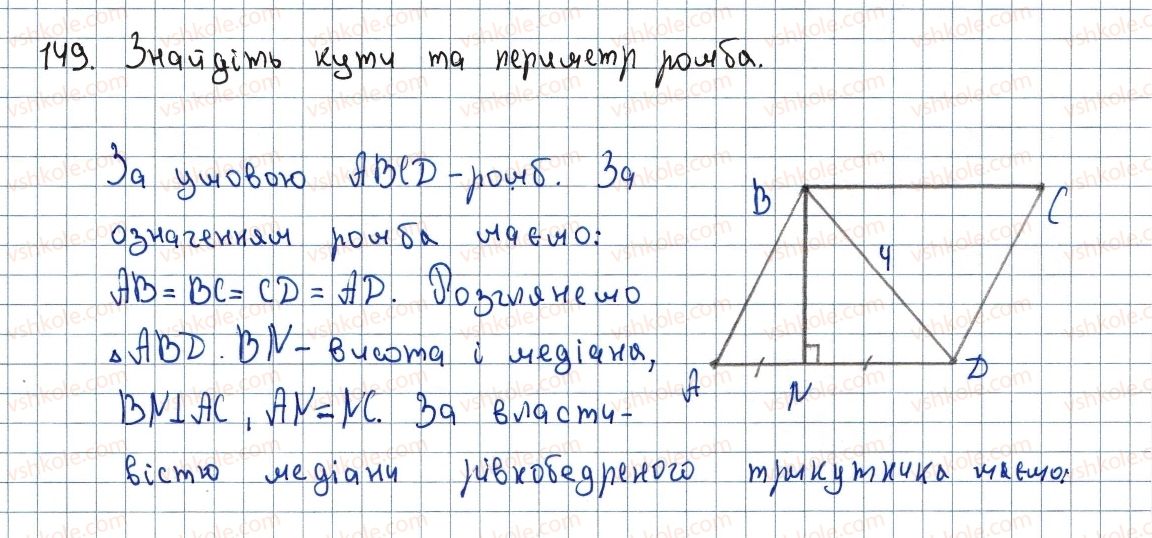 149. Знайдіть кути та периметр ромба.
За умовою ABCD - ромб. За
означенням ромба маємо:
AB = BC = CD = AD. Розглянемо
△ABD. BN - висота і медіана,
BN⊥AC, AN = NC. За власти-
вістю медіани рівнобедреного трикутника маємо:
B
C
4
A
N
D
vshkole.com